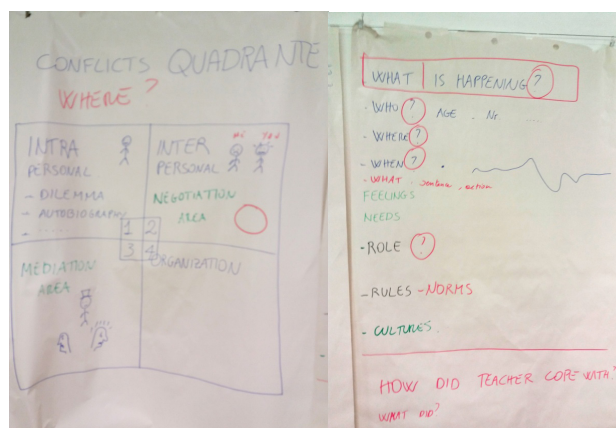 CONFLICTS QUADRANTE
WHERE ?
INTRA
PERSONAL
- DILEMMA
- AUTOBIOGRAPHY
- .....
INTER
PERSONAL
YOU
NEGOTIATION
AREA
1 2
3 4
MEDIATION
AREA
ORGANIZATION
WHAT IS HAPPENING ?
- WHO ? AGE . Nr. ....
- WHERE ?
- WHEN ? .
- WHAT . sentence , action
FEELINGS
NEEDS
- ROLE ?
- RULES - NORMS
- CULTURES .
HOW DID TEACHER COPE WITH ?
WHAT DID ?